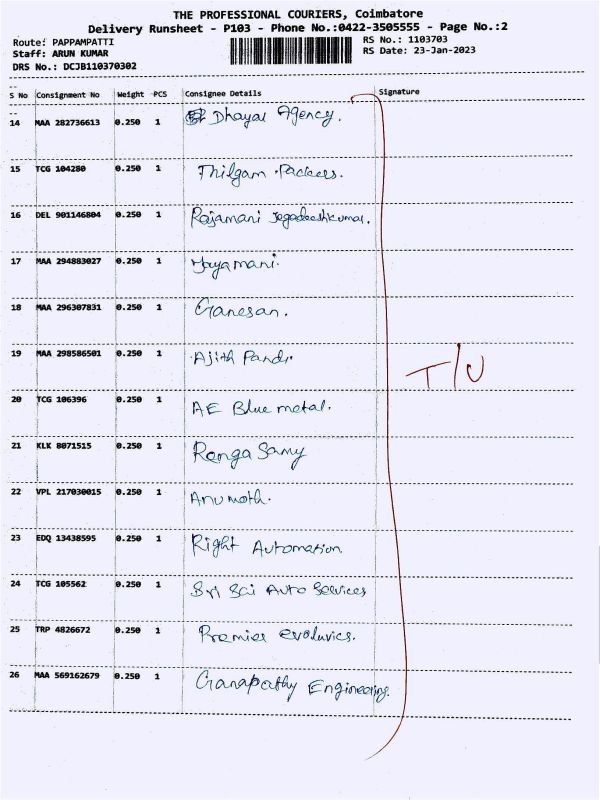 THE PROFESSIONAL COURIERS, Coimbatore
Delivery Runsheet - P103 - Phone No.:0422-3505555 - Page No.:2
Route: PAPPAMPATTI RS No.: 1103703
Staff: ARUN KUMAR RS Date: 23-Jan-2023
DRS No.: DCJB110370302
S No Consignment No Weight PCS Consignee Details Signature
14 MAA 282736613 0.250 1 Dhayal Agency.
15 TCG 104280 0.250 1 Thilgam Packers.
16 DEL 901146804 0.250 1 Rajamani Jegadeeshkumar.
17 MAA 294883027 0.250 1 Jayamani.
18 MAA 296307831 0.250 1 Ganesan.
19 MAA 298586501 0.250 1 Ajith Pandi.
T/U
20 TCG 106396 0.250 1 AE Blue metal.
21 KLK 8071515 0.250 1 Renga Samy
22 VPL 217030015 0.250 1 Anumoth.
23 EDQ 13438595 0.250 1 Right Automation
24 TCG 105562 0.250 1 Sri Sai Auto Services
25 TRP 4826672 0.250 1 Premier
26 MAA 569162679 0.250 1 Ganapathy Engineering.